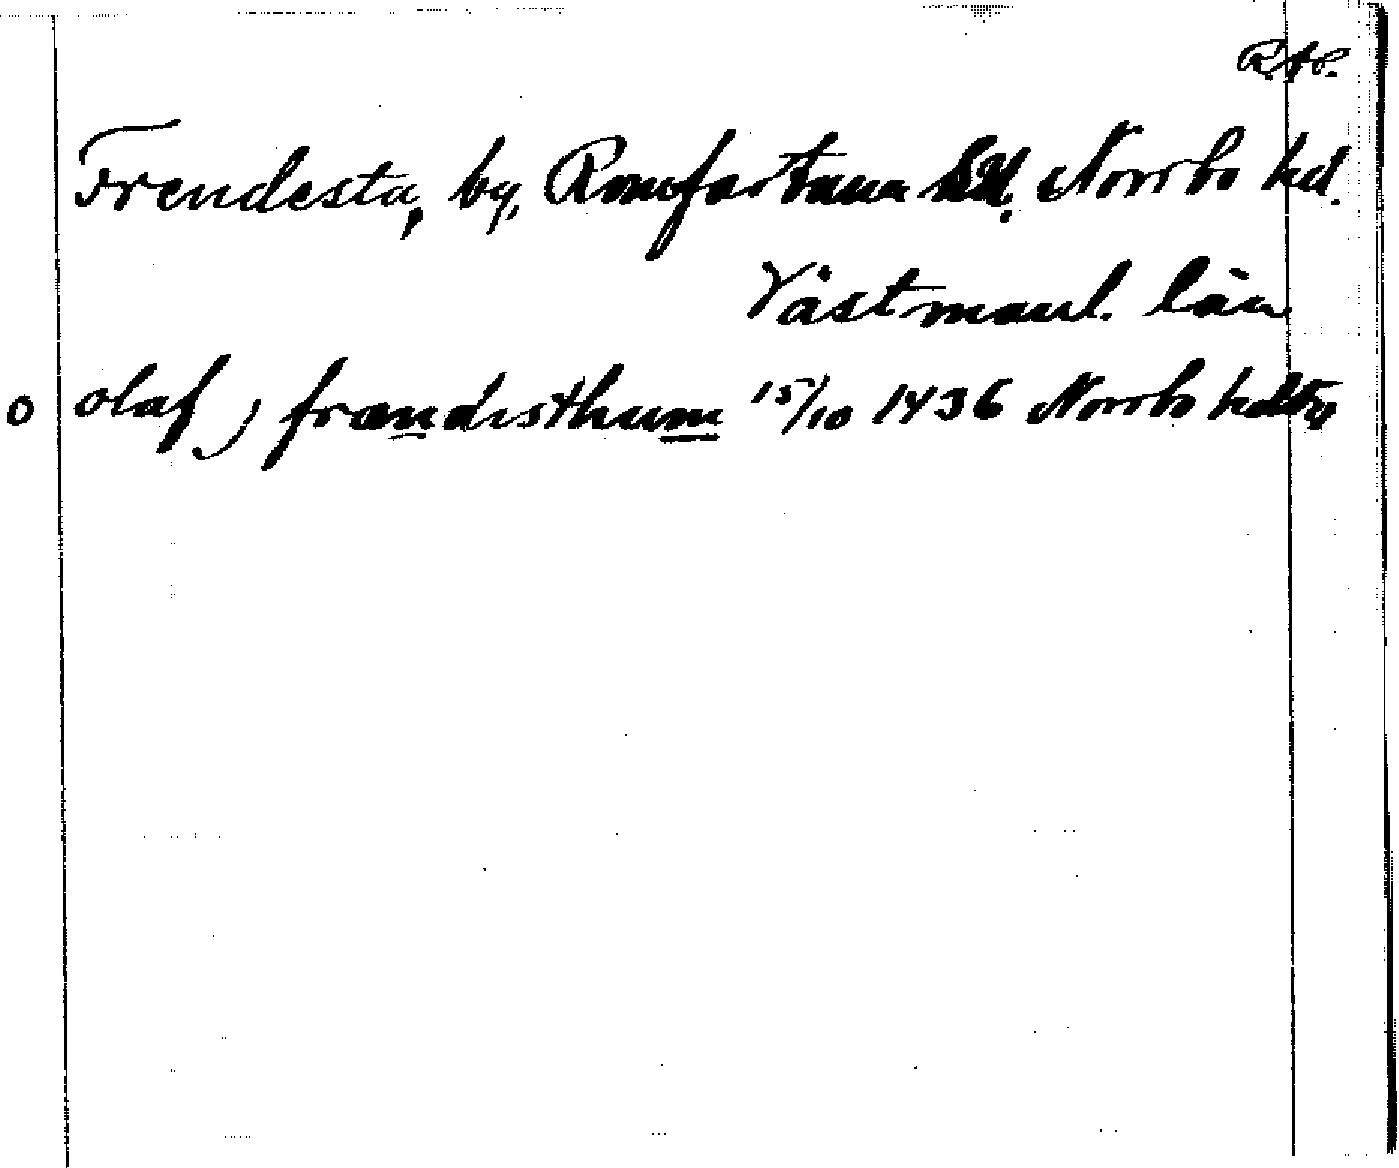 RAP.
Frendesta, by, Romfartuna sn. Norrbo hd.
Västmanl. län
o olaf j frændisthum 15/10 1436 Norrbo hdtg